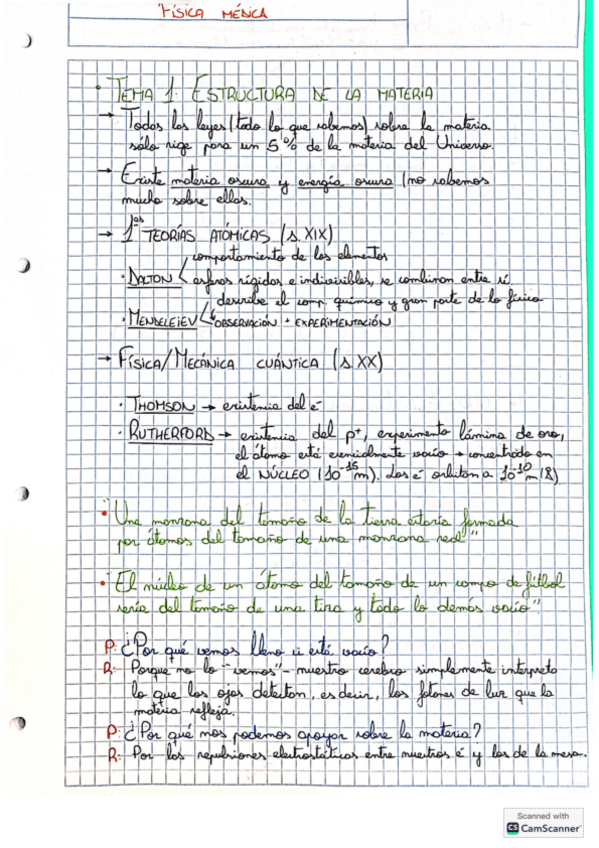 FÍSICA MÉDICA
• TEMA 1. ESTRUCTURA DE LA MATERIA
→ Todas las leyes (todo lo que sabemos) sobre la materia
sólo rige para un 5% de la materia del Universo.
→ Existe materia oscura y energía oscura (no sabemos
mucho sobre ellas.
→ 1ᵃˢ TEORÍAS ATÓMICAS (s. XIX)
comportamiento de los elementos
· DALTON esferas rígidas e indivisibles, se combinan entre sí.
describe el comp. químico y gran parte de lo físico
· MENDELEIEV OBSERVACIÓN + EXPERIMENTACIÓN
→ FÍSICA/MECÁNICA CUÁNTICA (s. XX)
· THOMSON → existencia del e⁻
· RUTHERFORD → existencia del p⁺, experimento lámina de oro,
el átomo está esencialmente vacío → concentrado en
el NÚCLEO (10⁻¹⁵m). Los e⁻ orbitan a 10⁻¹⁰m (Å)
• "Una manzana del tamaño de la tierra estaría formada
por átomos del tamaño de una manzana real"
• "El núcleo de un átomo del tamaño de un campo de fútbol
sería del tamaño de una tiza y todo lo demás vacío"
P: ¿Por qué vemos lleno si está vacío?
R: Porque no lo "vemos" - nuestro cerebro simplemente interpreta
lo que los ojos detectan, es decir, los fotones de luz que la
materia refleja.
P: ¿Por qué nos podemos apoyar sobre la materia?
R: Por las repulsiones electrostáticas entre nuestros e⁻ y los de la mesa.
Scanned with
CS CamScanner